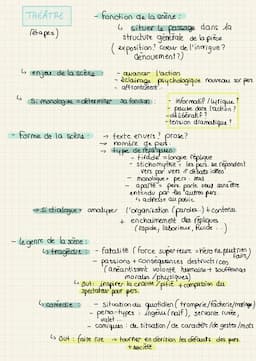 THÉÂTRE
(étapes)
- Fonction de la scène :
↳ situer le passage dans la
structure générale de la pièce
(exposition? cœur de l'intrigue?
dénouement?)
↳ enjeu de la scène :
- avancer l'action
- éclairage psychologique nouveau sur pers.
- affrontement
↳ Si monologue = déterminer sa fonction
- informatif / lyrique?
- pause dans l'action?
- délibératif?
- tension dramatique?
- Forme de la scène :
→ texte en vers? prose?
→ nombre de pers.
→ type de répliques
- tirade = longue réplique
- stichomythie = les pers. se répondent
vers par vers
- monologue = pers. seul
- aparté = pers. parle sans être
entendu par les autres pers.
↳ adresse au public
⇒ Si dialogue = analyser l'organisation (paroles) + contenu
+ enchaînement des répliques
(rapide, laborieux, fluide...)
- le genre de la scène :
↳ tragédie :
- fatalité (force supérieure
- passions + conséquences destructrices
(anéantissent volonté humaine + souffrances
morales / physiques)
↳ But : inspirer la crainte / pitié + compassion du
spectateur pour pers.
↳ comédie :
- situation du quotidien (tromperie/
- perso-types : ingénu (naïf), servante rusée,
valet...
- comiques : de situation / de caractère / de gestes / mots
↳ But : faire rire → tourner en dérision les défauts des pers.
+ société